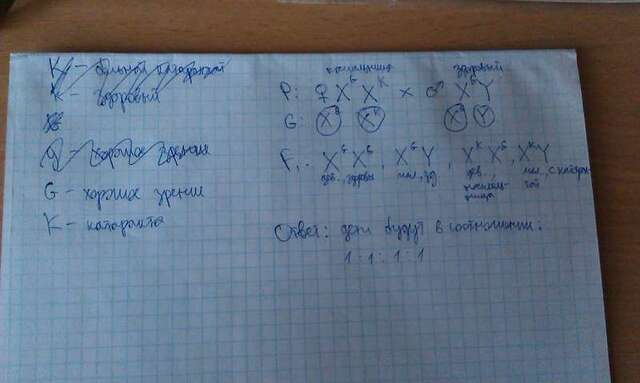 К – больной катарактой
к – здоровый
G – хорошее зрение
G – хорошее зрение
К – катаракта
носительница здоровый
P: ♀ X^G X^K × ♂ X^G Y
G: X^G X^K X^G Y
F₁: X^G X^G, X^G Y, X^K X^G, X^K Y
дев., здоровы мал., зд. дев., носительница мал., с катарактой
Ответ: дети будут в соотношении:
1 : 1 : 1 : 1